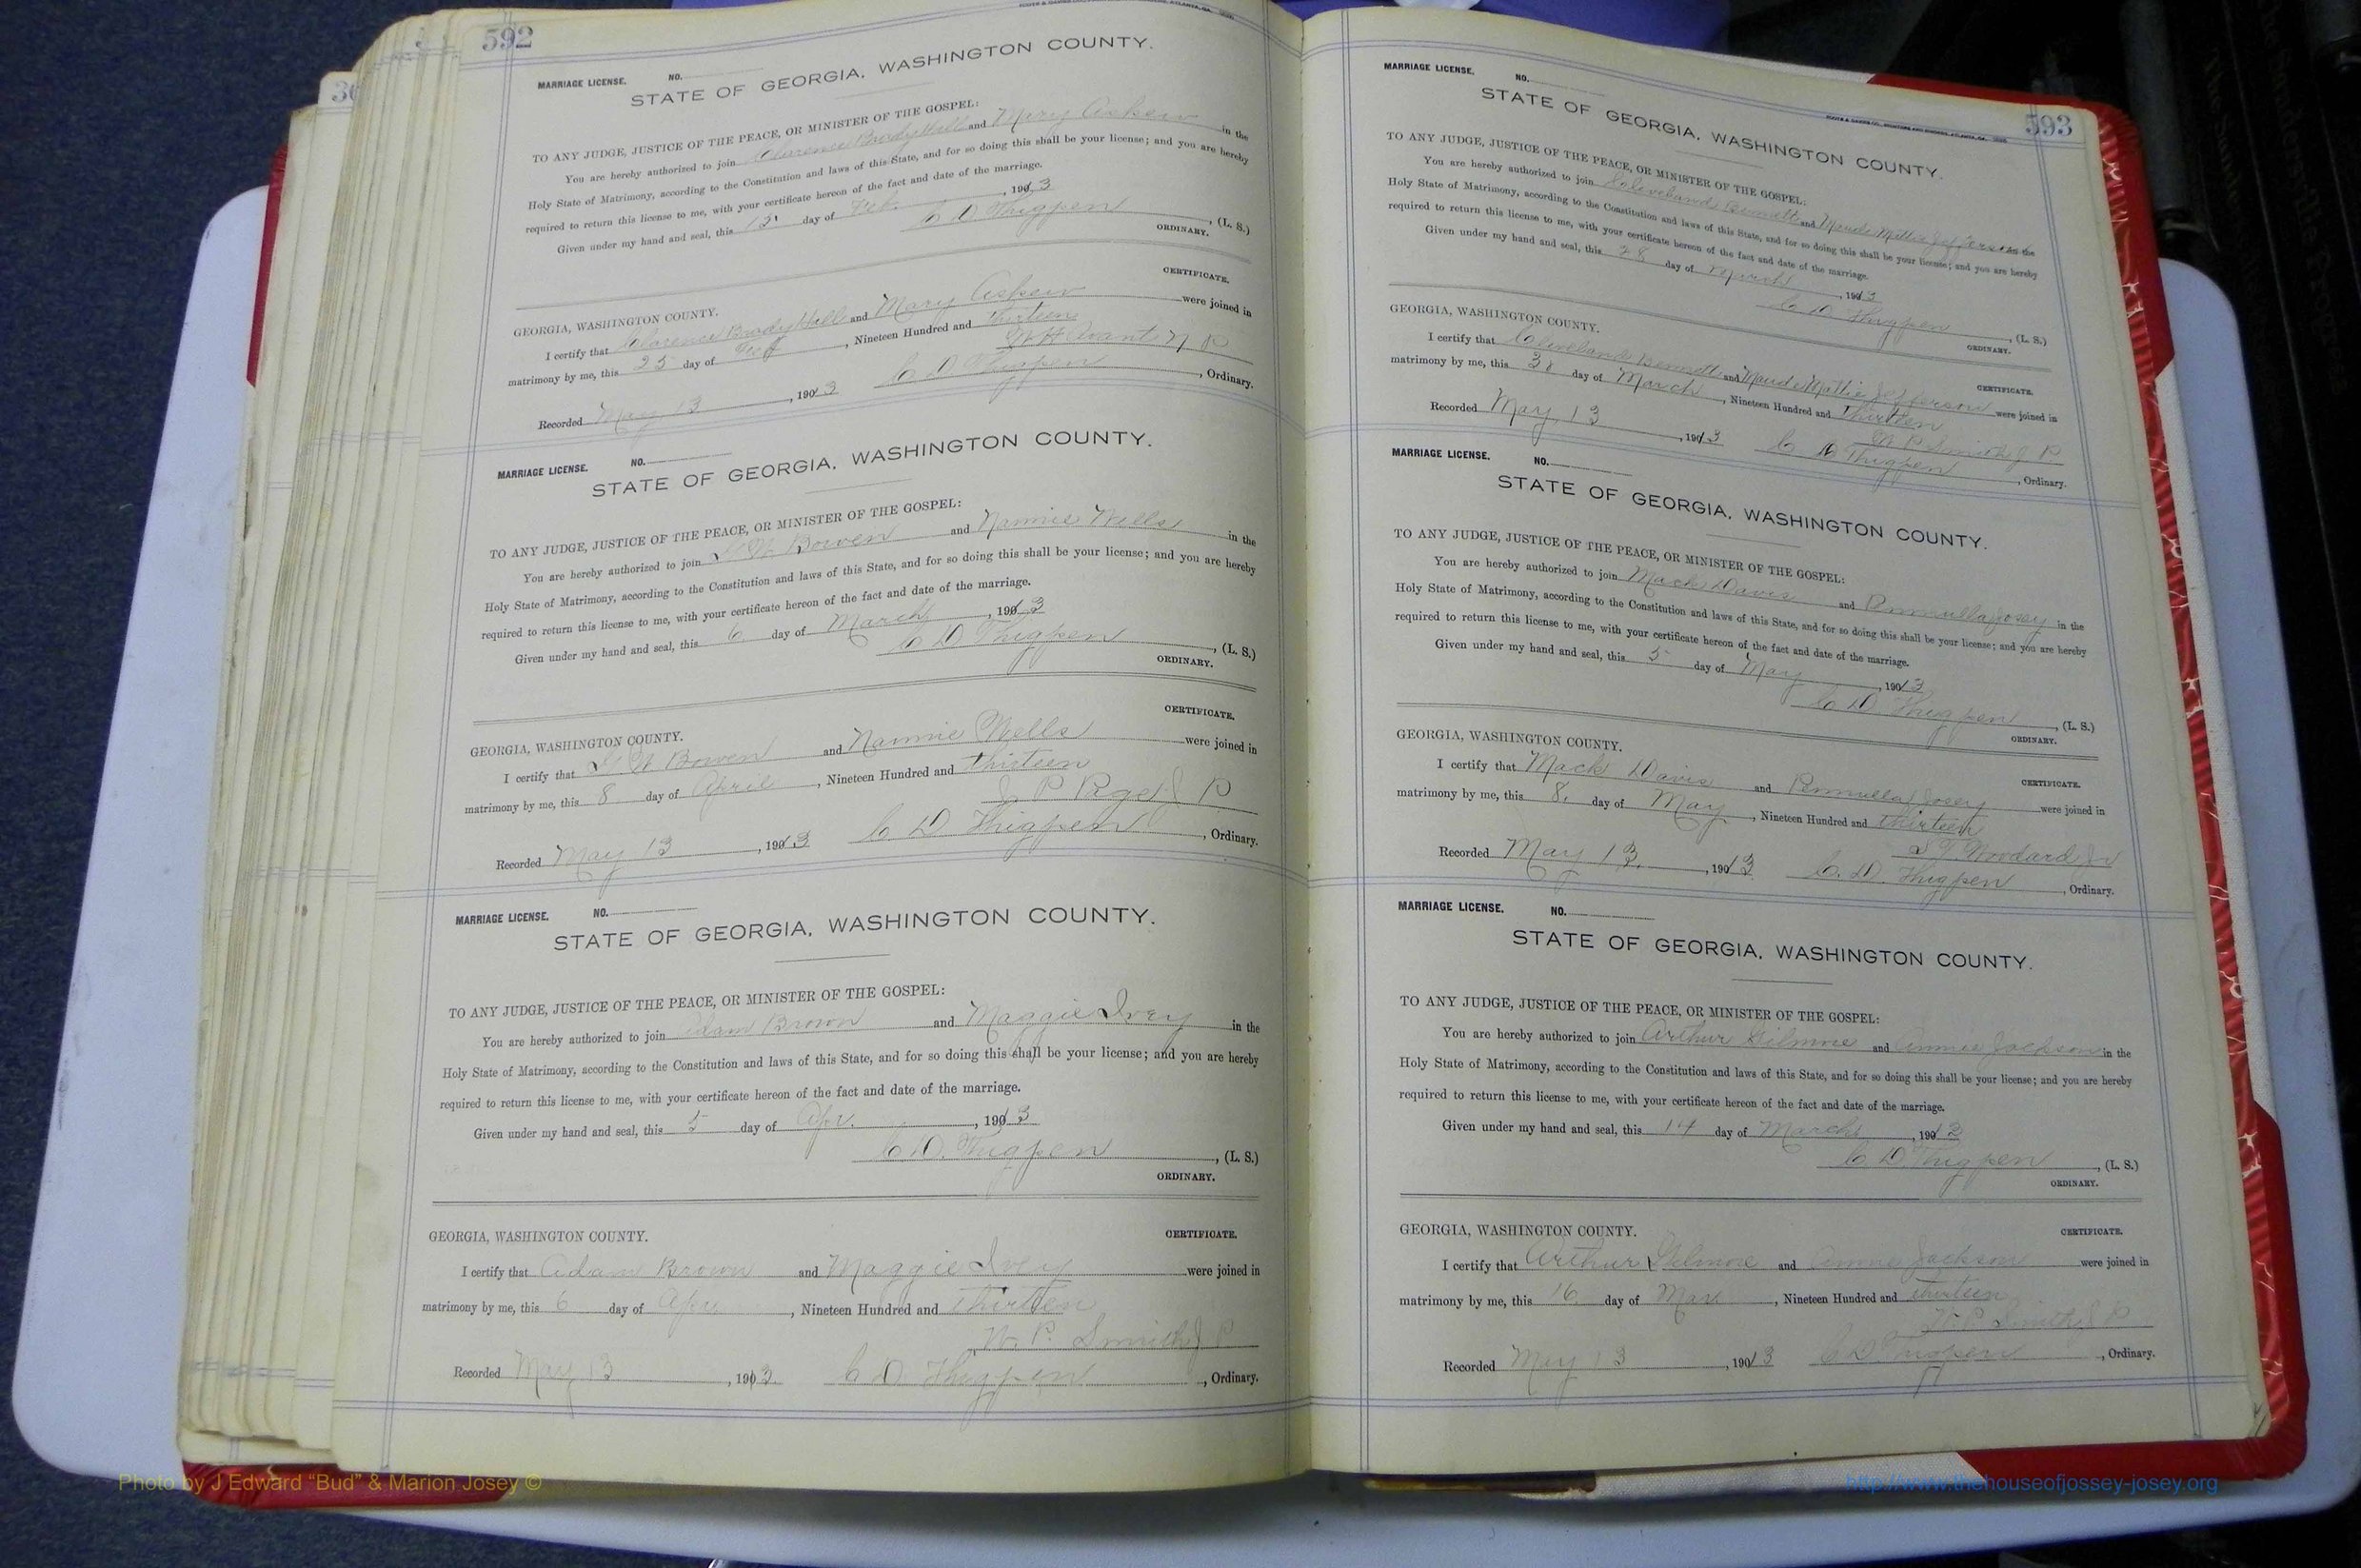 592
MARRIAGE LICENSE. NO.
STATE OF GEORGIA, WASHINGTON COUNTY.
TO ANY JUDGE, JUSTICE OF THE PEACE, OR MINISTER OF THE GOSPEL:
You are hereby authorized to join Clarence Brady Hall and Mary Askew in the
Holy State of Matrimony, according to the Constitution and laws of this State, and for so doing this shall be your license; and you are hereby
required to return this license to me, with your certificate hereon of the fact and date of the marriage.
Given under my hand and seal, this day of Feb. , 1913
C D Thigpen , (L. S.)
ORDINARY.
CERTIFICATE.
GEORGIA, WASHINGTON COUNTY.
I certify that Clarence Brady Hall and Mary Askew were joined in
matrimony by me, this 25 day of , Nineteen Hundred and thirteen
Avant N P
Recorded May 13 , 1913 C D Thigpen , Ordinary.
MARRIAGE LICENSE. NO.
STATE OF GEORGIA, WASHINGTON COUNTY.
TO ANY JUDGE, JUSTICE OF THE PEACE, OR MINISTER OF THE GOSPEL:
You are hereby authorized to join Bowen and Nannie Wells in the
Holy State of Matrimony, according to the Constitution and laws of this State, and for so doing this shall be your license; and you are hereby
required to return this license to me, with your certificate hereon of the fact and date of the marriage.
Given under my hand and seal, this 6 day of March , 1913
C D Thigpen , (L. S.)
ORDINARY.
CERTIFICATE.
GEORGIA, WASHINGTON COUNTY.
I certify that Bowen and Nannie Wells were joined in
matrimony by me, this 8 day of April , Nineteen Hundred and thirteen
J P Page J P
Recorded May 13 , 1913 C D Thigpen , Ordinary.
MARRIAGE LICENSE. NO.
STATE OF GEORGIA, WASHINGTON COUNTY.
TO ANY JUDGE, JUSTICE OF THE PEACE, OR MINISTER OF THE GOSPEL:
You are hereby authorized to join Adam Brown and Maggie Ivey in the
Holy State of Matrimony, according to the Constitution and laws of this State, and for so doing this shall be your license; and you are hereby
required to return this license to me, with your certificate hereon of the fact and date of the marriage.
Given under my hand and seal, this 5 day of Apr. , 1913
C D. Thigpen , (L. S.)
ORDINARY.
GEORGIA, WASHINGTON COUNTY. CERTIFICATE.
I certify that Adam Brown and Maggie Ivey were joined in
matrimony by me, this 6 day of , Nineteen Hundred and Thirteen
W. P. Smith J P
Recorded May 13 , 1913 C D Thigpen , Ordinary.
593
MARRIAGE LICENSE. NO.
STATE OF GEORGIA, WASHINGTON COUNTY.
TO ANY JUDGE, JUSTICE OF THE PEACE, OR MINISTER OF THE GOSPEL:
You are hereby authorized to join Cleveland Bennett and Maude Mittie Jefferson in the
Holy State of Matrimony, according to the Constitution and laws of this State, and for so doing this shall be your license; and you are hereby
required to return this license to me, with your certificate hereon of the fact and date of the marriage.
Given under my hand and seal, this 28 day of March , 1913
C D Thigpen , (L. S.)
ORDINARY.
GEORGIA, WASHINGTON COUNTY.
CERTIFICATE.
I certify that Cleveland Bennett and Maude Mattie Jefferson were joined in
matrimony by me, this day of March , Nineteen Hundred and Thirteen
W P Smith J P
Recorded May 13 , 1913 C D Thigpen , Ordinary.
MARRIAGE LICENSE. NO.
STATE OF GEORGIA, WASHINGTON COUNTY.
TO ANY JUDGE, JUSTICE OF THE PEACE, OR MINISTER OF THE GOSPEL:
You are hereby authorized to join Mack Davis and Josey in the
Holy State of Matrimony, according to the Constitution and laws of this State, and for so doing this shall be your license; and you are hereby
required to return this license to me, with your certificate hereon of the fact and date of the marriage.
Given under my hand and seal, this 5 day of May , 1913
C D. Thigpen , (L. S.)
ORDINARY.
GEORGIA, WASHINGTON COUNTY.
CERTIFICATE.
I certify that Mack Davis and Josey were joined in
matrimony by me, this 8. day of May , Nineteen Hundred and thirteen
Woodard
Recorded May 13. , 1913 C. D. Thigpen , Ordinary.
MARRIAGE LICENSE. NO.
STATE OF GEORGIA, WASHINGTON COUNTY.
TO ANY JUDGE, JUSTICE OF THE PEACE, OR MINISTER OF THE GOSPEL:
You are hereby authorized to join Arthur Gilmore and Annie Jackson in the
Holy State of Matrimony, according to the Constitution and laws of this State, and for so doing this shall be your license; and you are hereby
required to return this license to me, with your certificate hereon of the fact and date of the marriage.
Given under my hand and seal, this 14 day of March , 1913
C D Thigpen , (L. S.)
ORDINARY.
GEORGIA, WASHINGTON COUNTY. CERTIFICATE.
I certify that Arthur Gilmore and Annie Jackson were joined in
matrimony by me, this 16 day of Mar , Nineteen Hundred and thirteen
W P Smith J P
Recorded May 13 , 1913 C D Thigpen , Ordinary.
Photo by J Edward “Bud” & Marion Josey ©
http://www.thehouseofjossey-josey.org